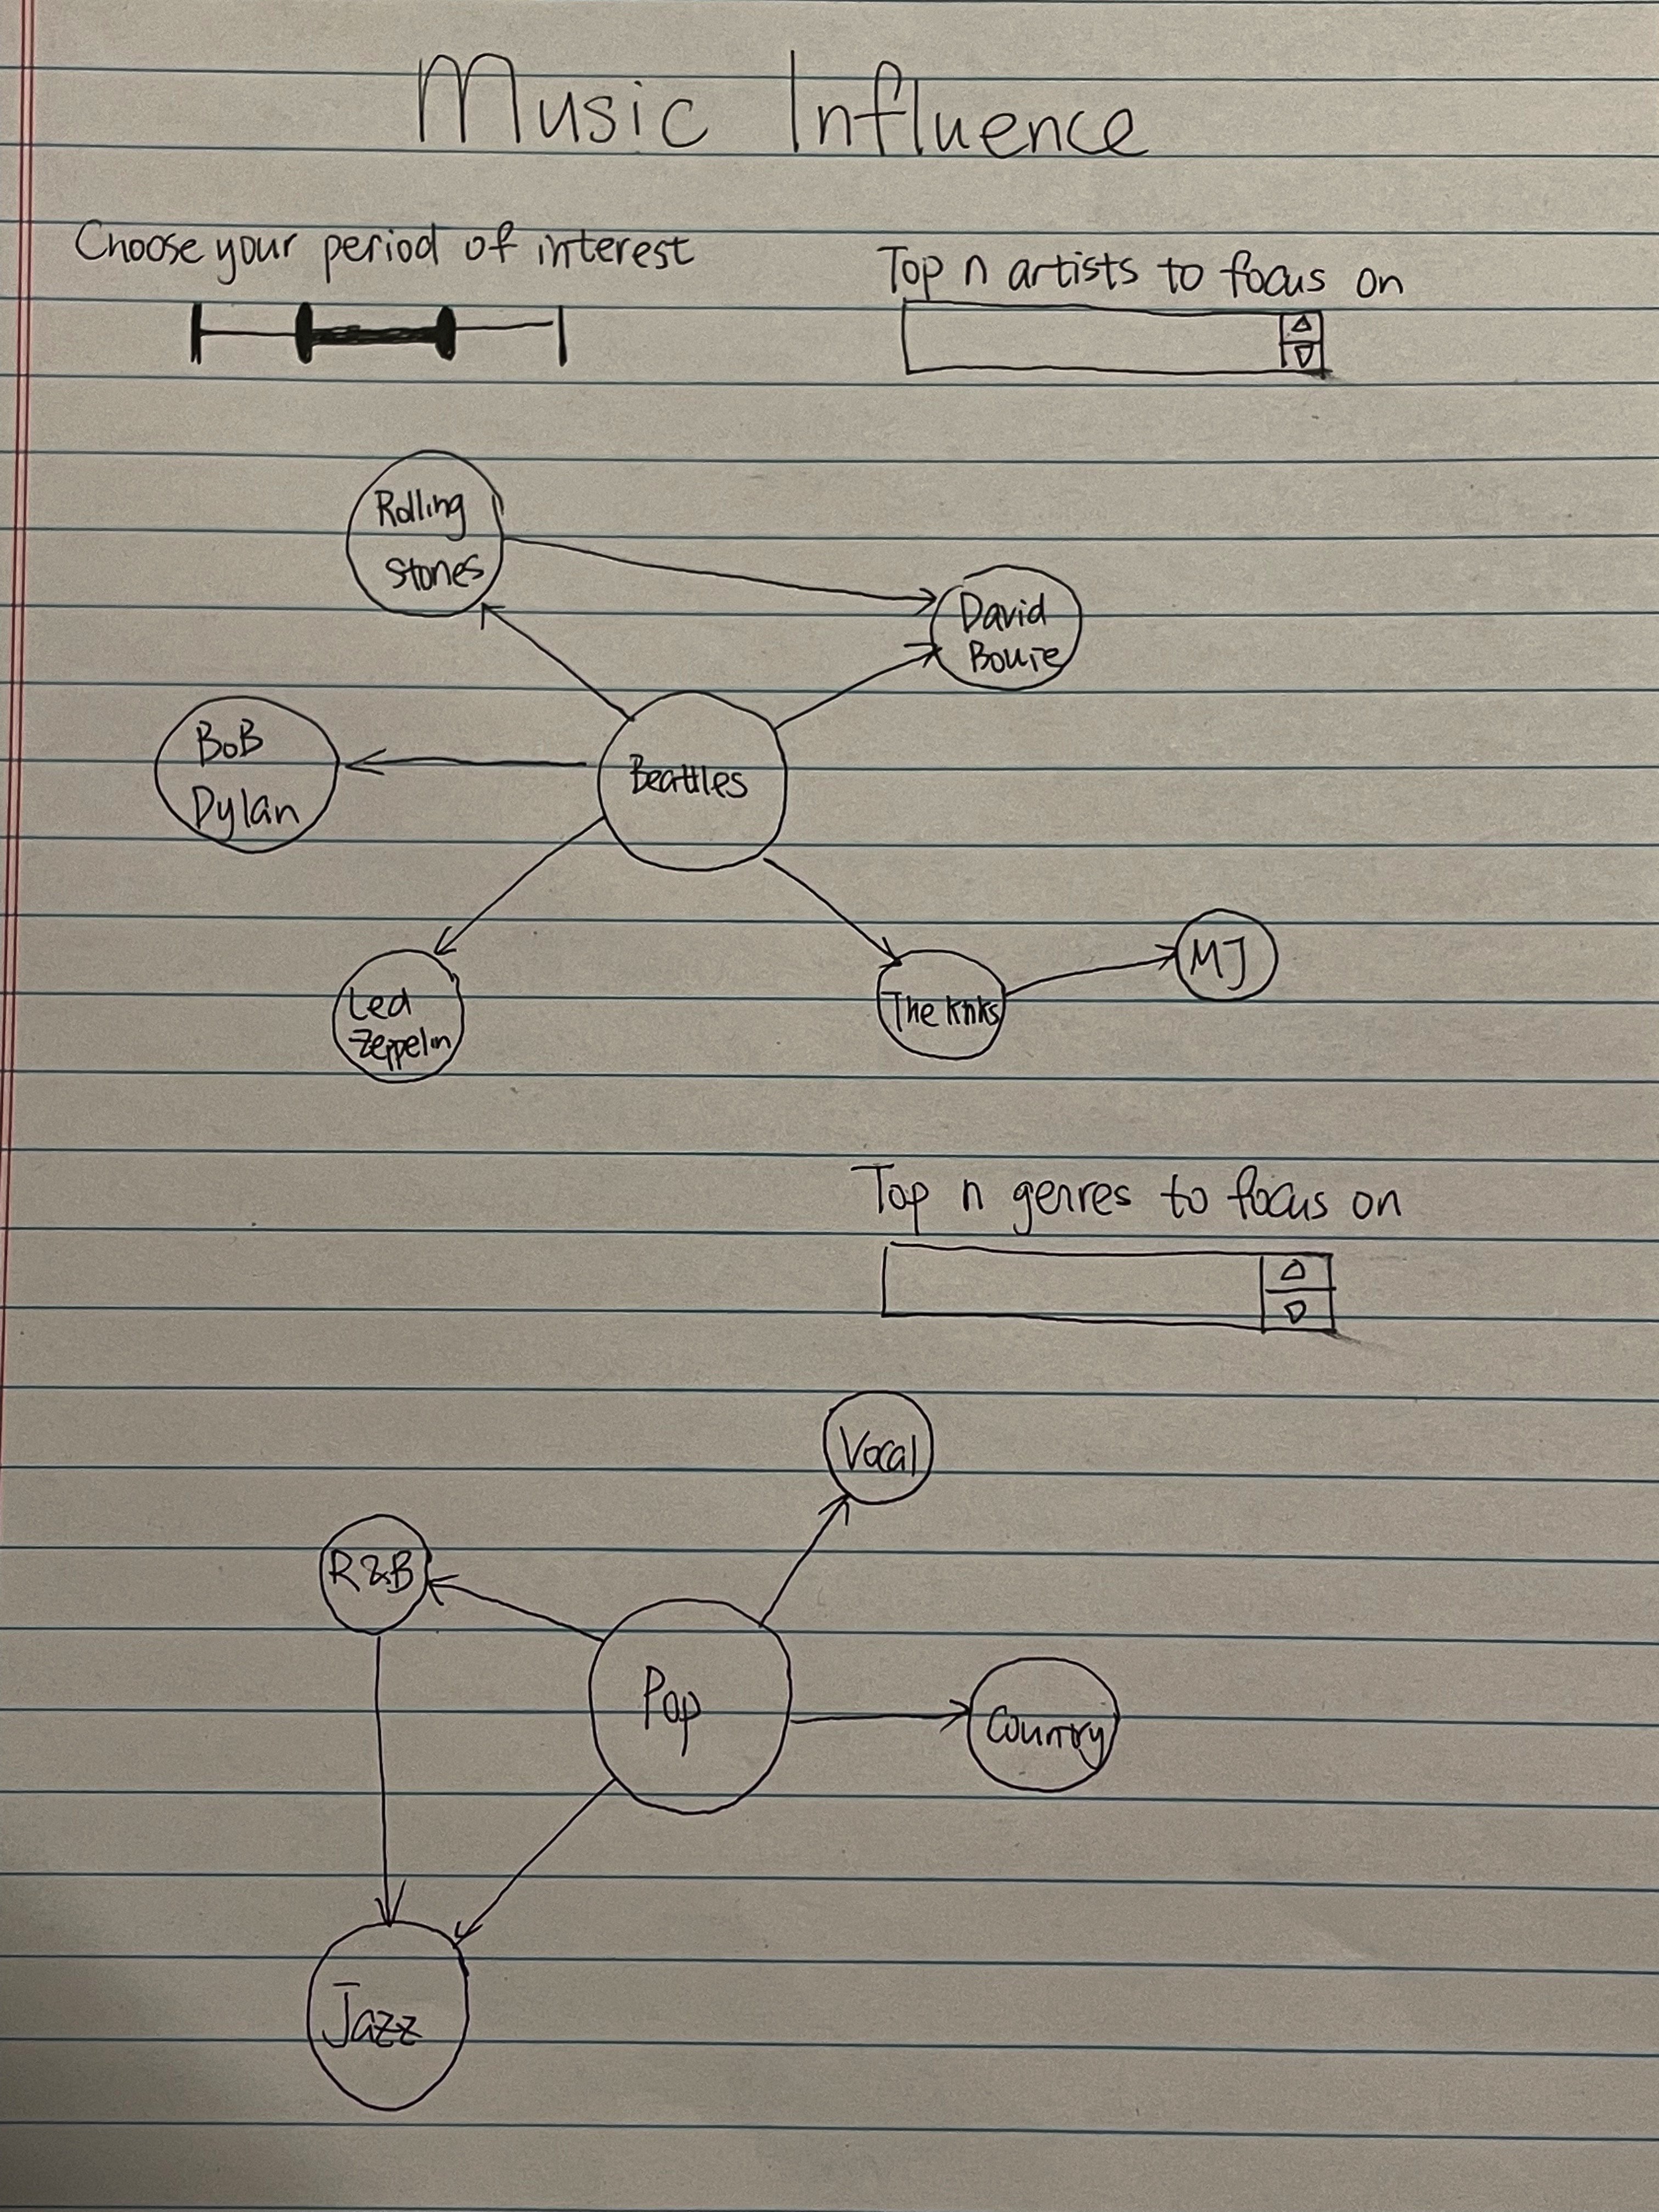 Music Influence
Choose your period of interest
Top n artists to focus on
Rolling
Stones
David
Bowie
BoB
Dylan
Beattles
Led
Zeppelin
The Kinks
MJ
Top n genres to focus on
Vocal
R&B
Pop
Country
Jazz